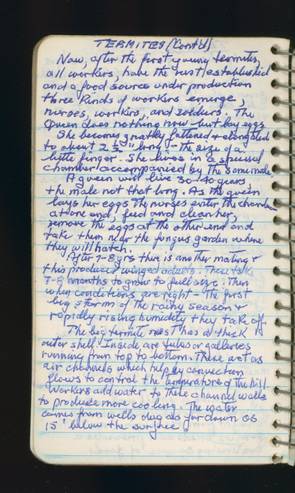 TERMITES (Cont'd)
Now, after the first young termites,
all workers, have the nest established
and a food source under production
three kinds of workers emerge,
nurses, workers, and soldiers. The
Queen does nothing now but lay eggs
She becomes greatly fattened & elongated
to about 2½" long - the size of a
little finger. She lives in a special
chamber accompanied by the same male.
A queen will live 30-40 years
the male not that long. As the queen
lays her eggs the nurses enter the chamber
at one end, feed and clean her,
remove the eggs at the other end and
take them near the fungus garden where
they will hatch.
After 7-8 yrs this is another mating &
this produces winged adults. These take
7-8 months to grow to full size. Then
when conditions are right - The first
big storms of the rainy season &
rapidly rising humidity they take off.
The big termite nest has a thick
outer shell. Inside are tubes or galleries
running from top to bottom. These act as
air channels which help by convection
flows to control the temperature of the hill.
Workers add water to these channel walls
to produce more cooling. The water
comes from wells dug as far down as
15' below the surface